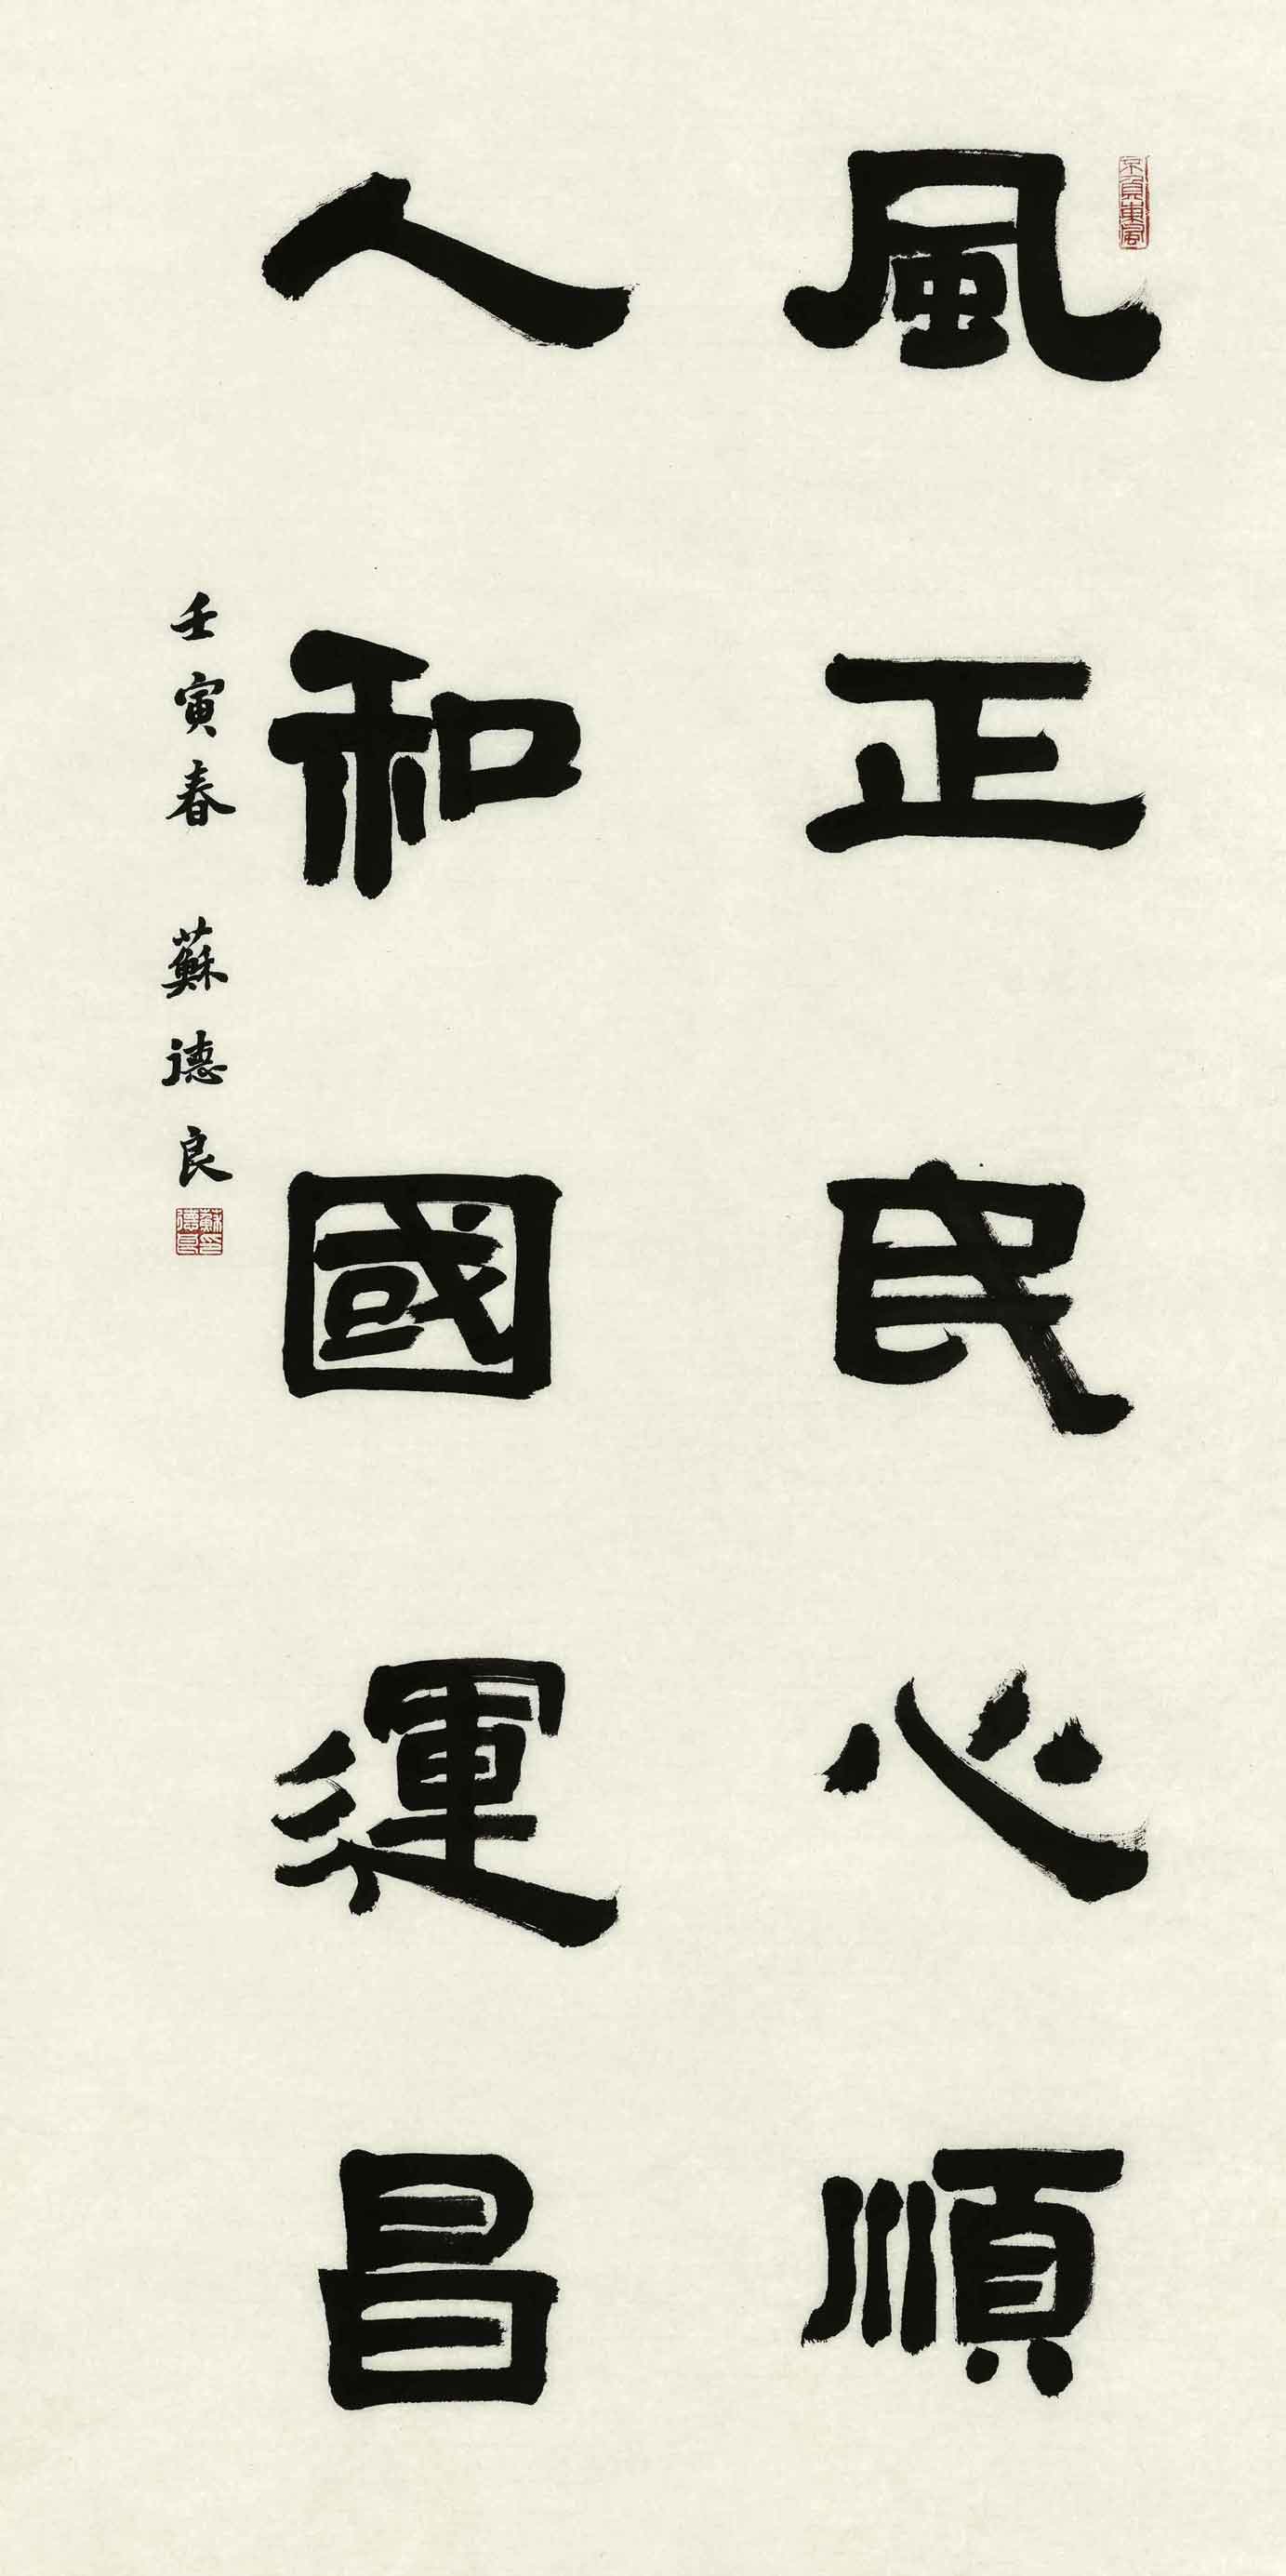 風正民心順
人和國運昌
壬寅春 蘇德良